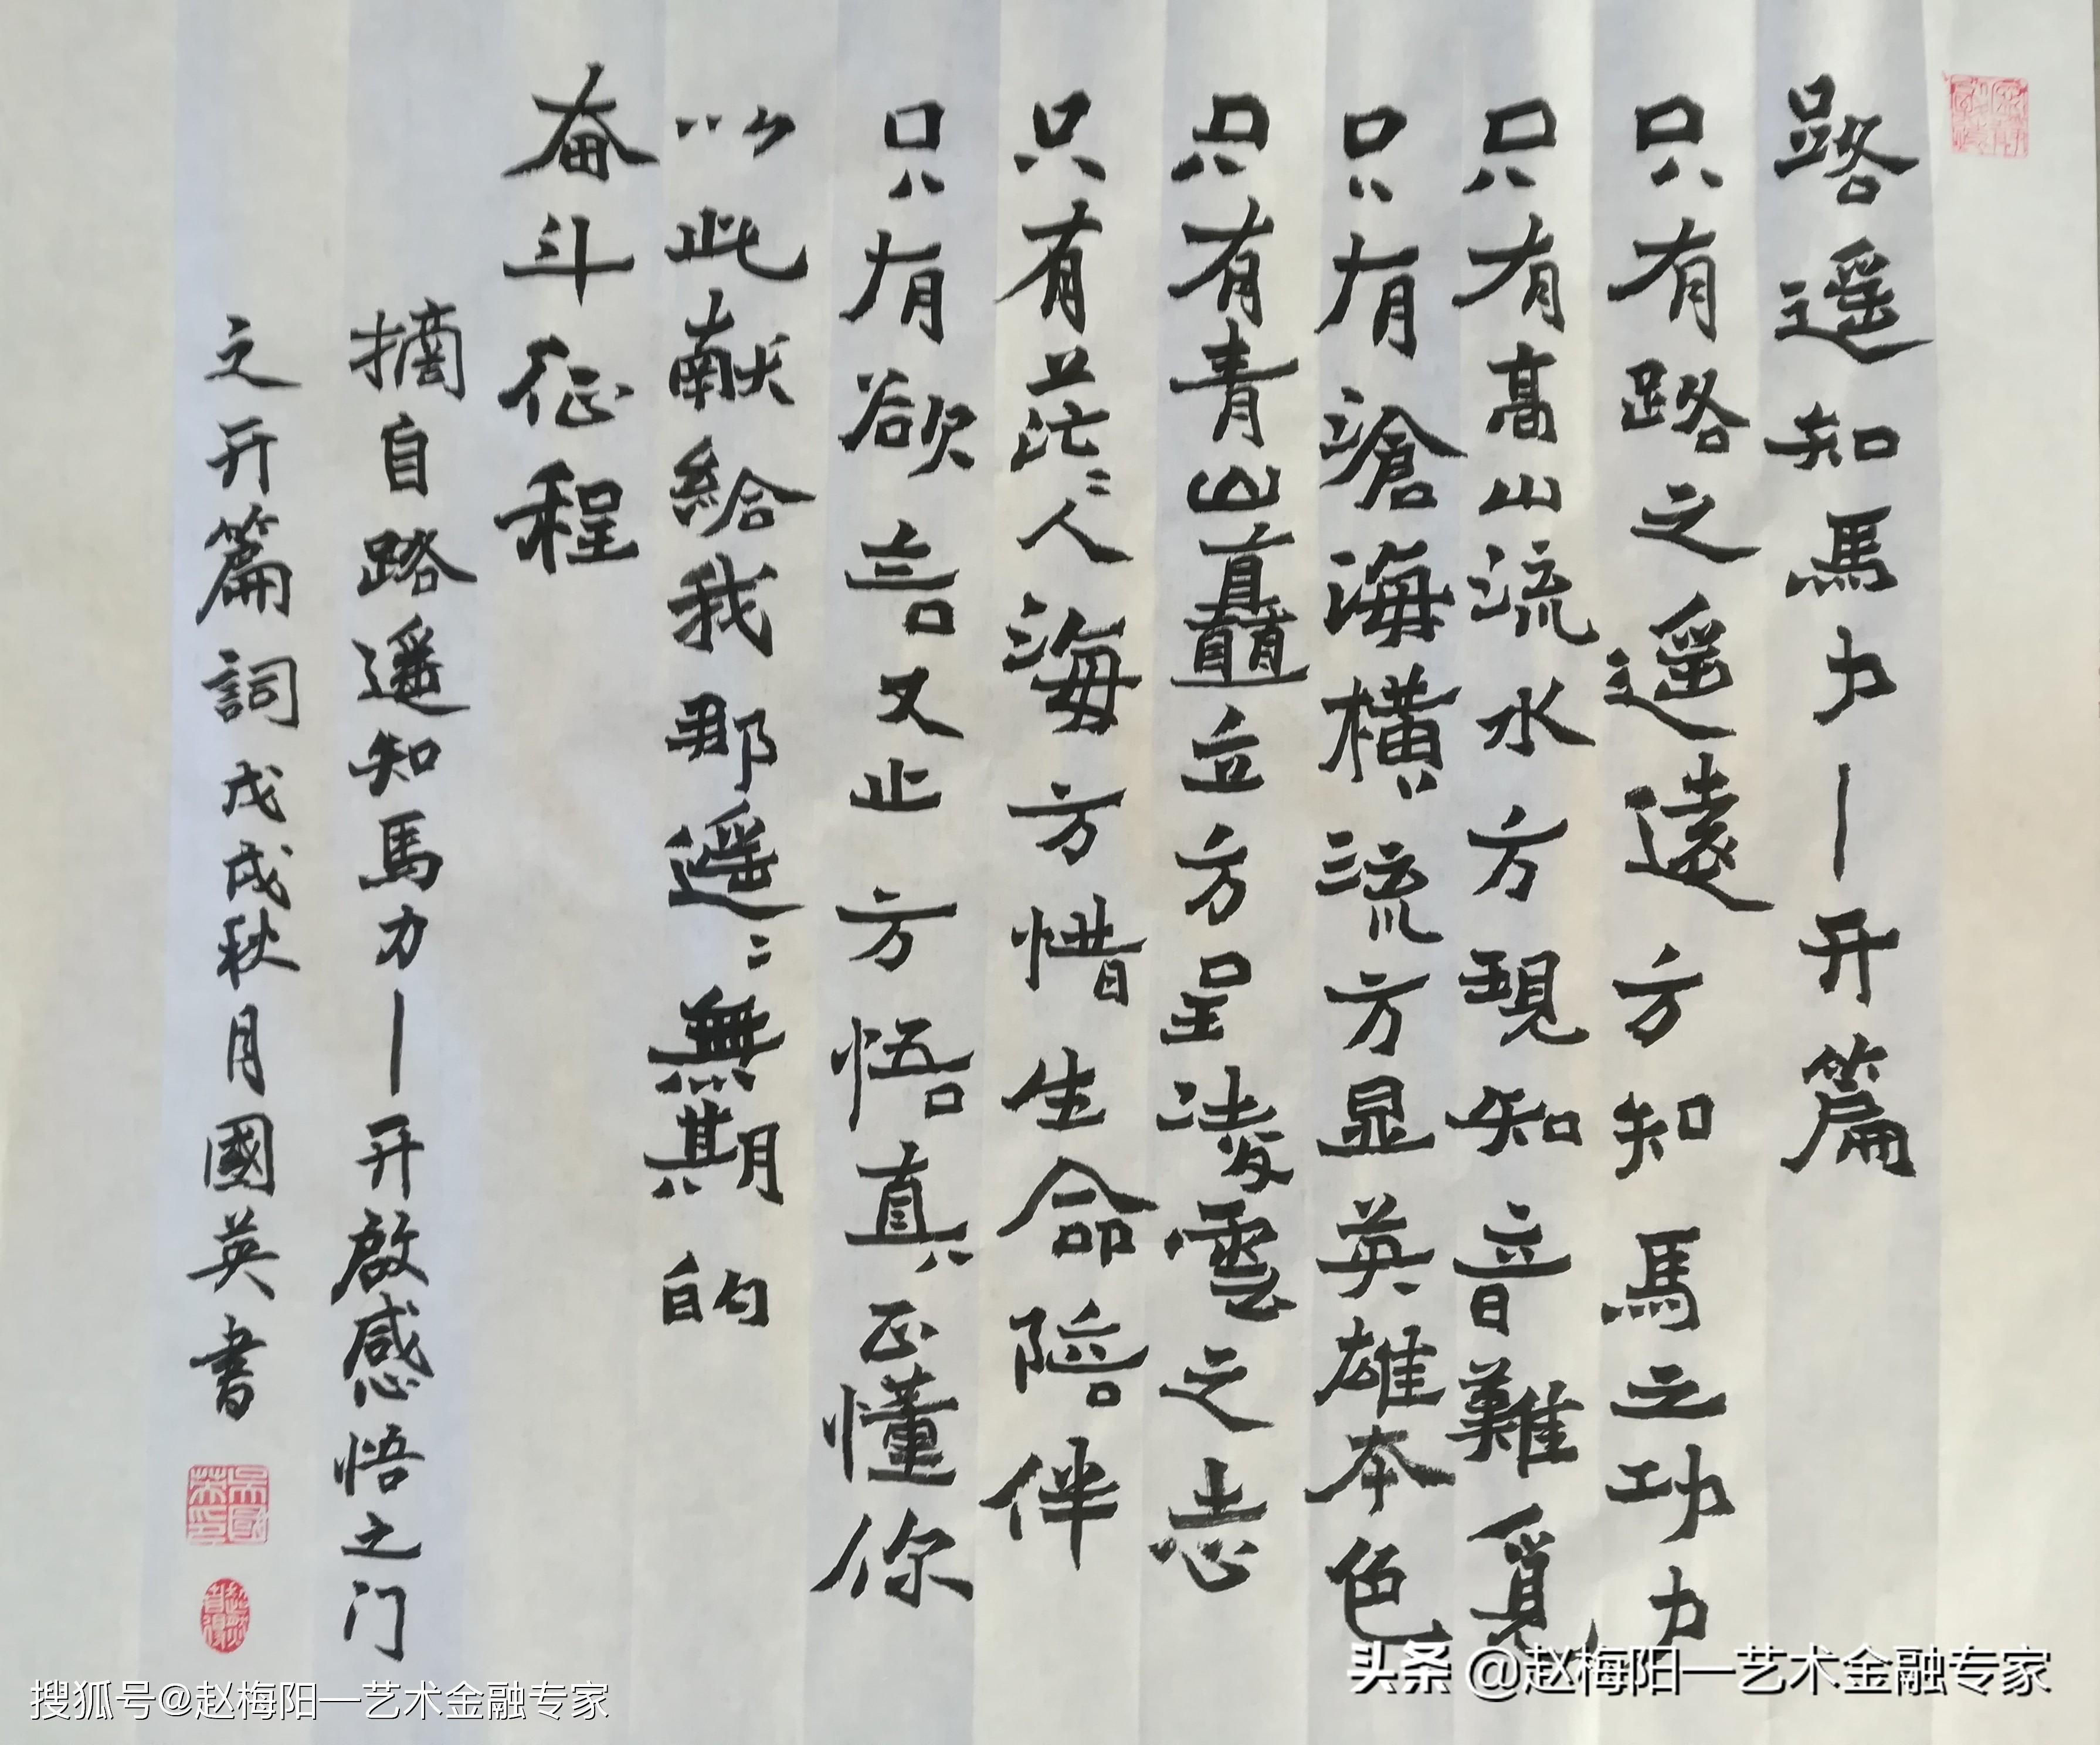 路遥知馬力—开篇
只有路之遥遠方知馬之功力
只有髙山流水方現知音難覓
只有滄海橫流方显英雄本色
只有青山矗立方呈凌雲之志
只有茫〻人海方惜生命陪伴
只有欲言又止方悟真正懂你
以此献給我那遥〻無期的
奋斗征程
摘自路遥知馬力—开啟感悟之门
之开篇詞戊戌秋月國英書
搜狐号@赵梅阳—艺术金融专家
头条 @赵梅阳—艺术金融专家